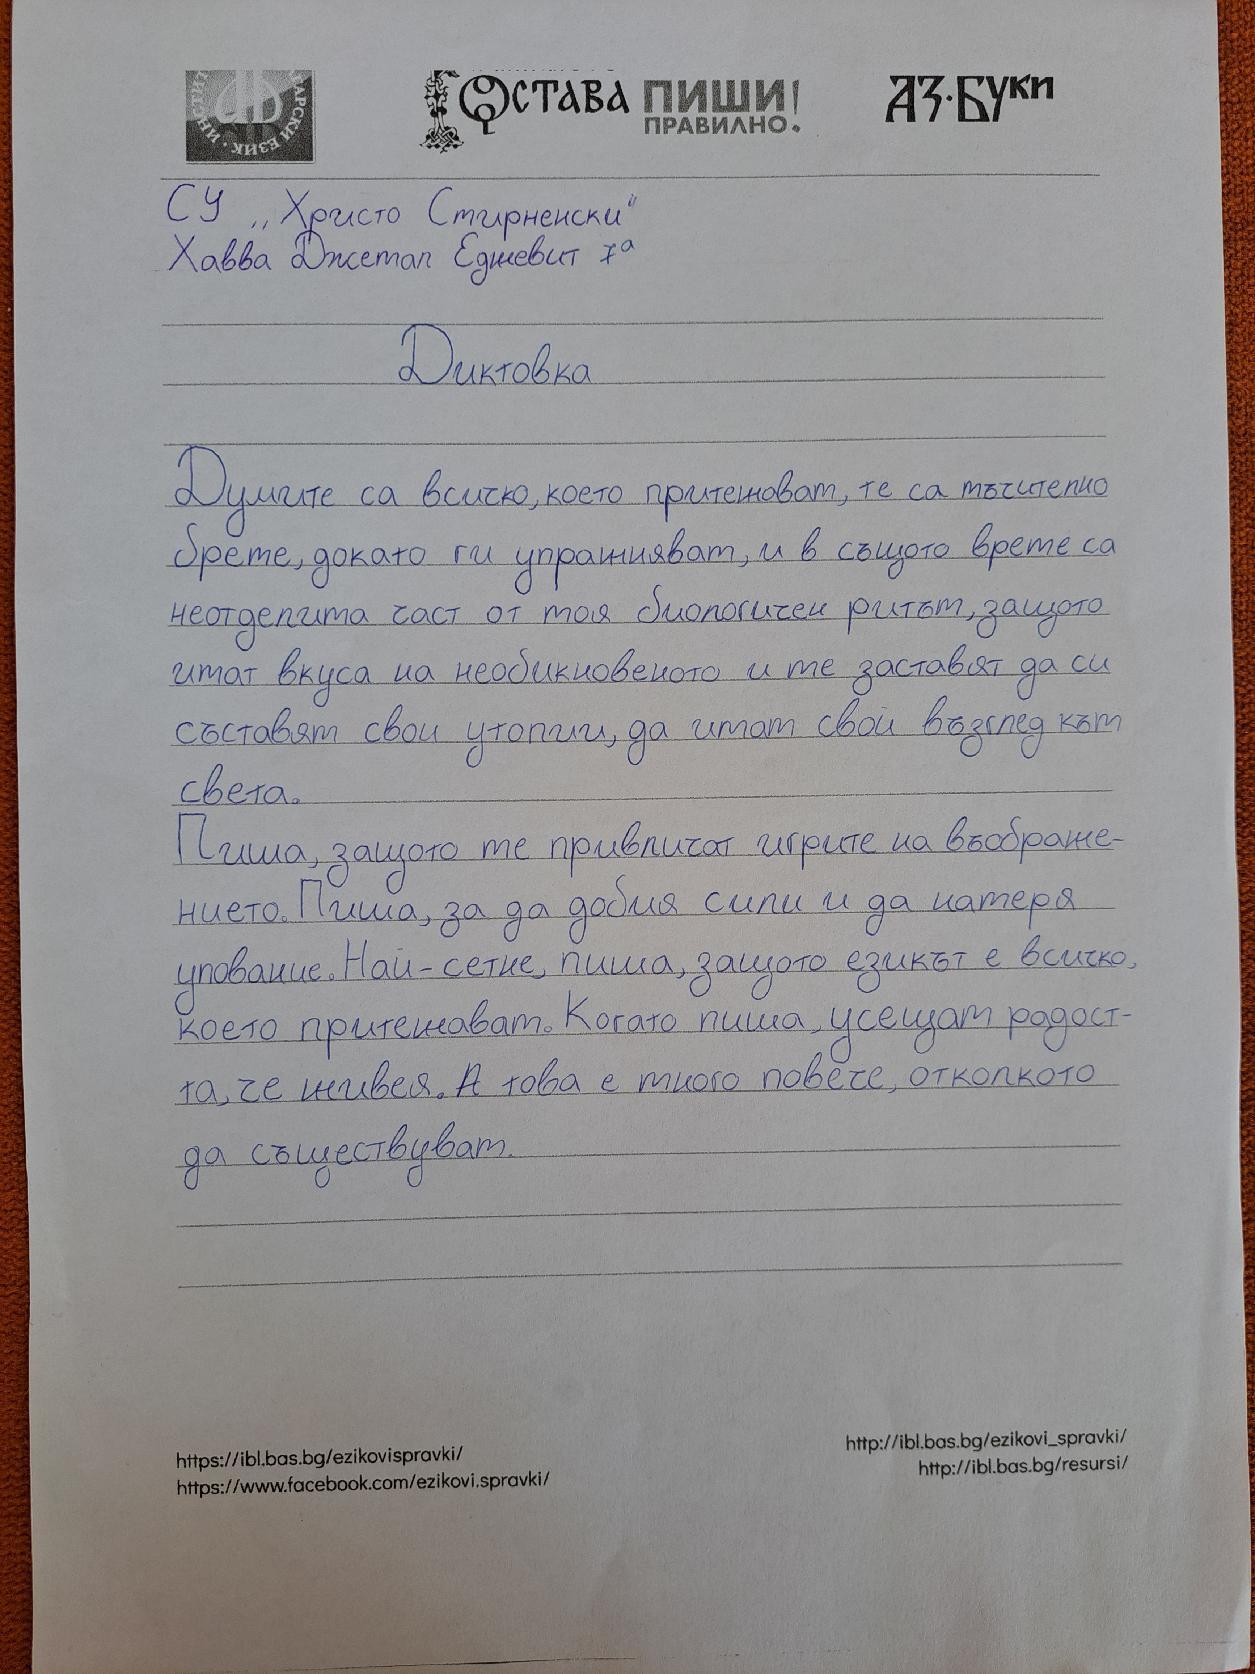 АРСКИ ЕЗИК · ИНСТИ
ОСТАВА ПИШИ ПРАВИЛНО!
АЗ·БУКИ
СУ „Христо Смирненски“
Хавва Джемал Еджевит 7а
Диктовка
Думите са всичко, което притежавам, те са мъчително
бреме, докато ги упражнявам, и в същото време са
неотделима част от моя биологичен ритъм, защото
имат вкуса на необикновеното и ме заставят да си
съставям свои утопии, да имам свой възглед към
света.
Пиша, защото ме привличат игрите на въображе-
нието. Пиша, за да добия сили и да намеря
упование. Най-сетне, пиша, защото езикът е всичко,
което притежавам. Когато пиша, усещам радост-
та, че живея. А това е много повече, отколкото
да съществувам.
https://ibl.bas.bg/ezikovispravki/
https://www.facebook.com/ezikovi.spravki/
http://ibl.bas.bg/ezikovi_spravki/
http://ibl.bas.bg/resursi/